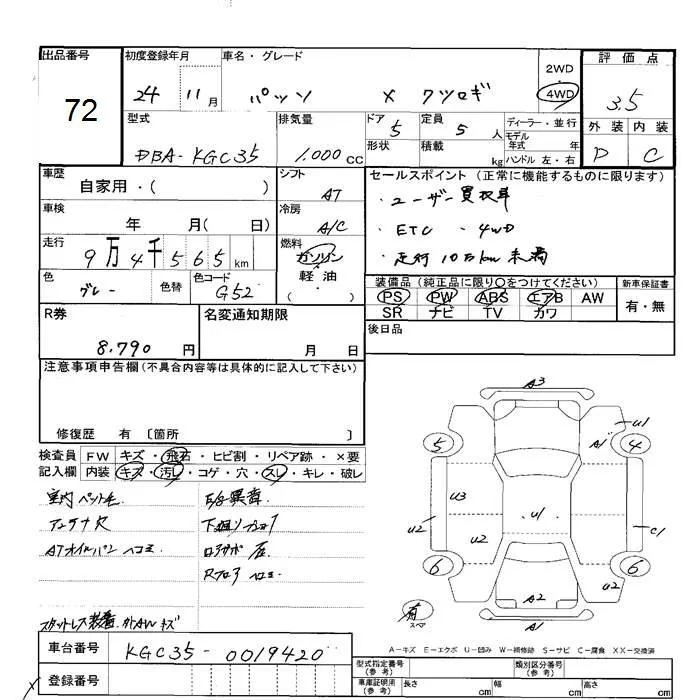 出品番号 初度登録年月 車名・グレード 2WD 評価点
72 24 11月 パッソ X クツロギ 4WD 3.5
型式 排気量 ドア 定員 ディーラー・並行 外装 内装
DBA-KGC35 1.000CC 5 5人 モデル年式 年 D C
形状 積載 kg ハンドル 左・右
車歴 自家用・( ) シフト AT セールスポイント(正常に機能するものに限ります)
車検 年 月( 日) 冷房 A/C ・ユーザー買取車
・ETC ・4WD
走行 9万4千565km 燃料 ガソリン 軽油 ( ) ・走行10万km未満
色 グレー 色替 色コード G52 装備品(純正品に限り○をつけてください) 新車保証書
PS PW ABS エアB AW 有・無
SR ナビ TV カワ
R券 8.790円 名変通知期限 月 日 後日品
注意事項申告欄(不具合内容等は具体的に記入して下さい)
修復歴 有 〔箇所 〕
検査員 FW キズ・飛石・ヒビ割・リペア跡・×要
記入欄 内装 キズ・汚レ・コゲ・穴・スレ・キレ・破レ
室内ペット毛 E/g異音
アンテナ欠
ATオイルパンヘコミ
スタットレス装着
A3
U1
A1
5 4
U3
U1
U2 U2 C1
6 6
U2
A2
有 スペア A1
A-キズ E-エクボ U-凹み W-補修跡 S-サビ C-腐食 XX-交換済
車台番号 KGC35-0019420
登録番号
型式指定番号(参考) 類別区分番号(参考)
車庫証明用(参考) 長さ cm 幅 cm 高さ cm